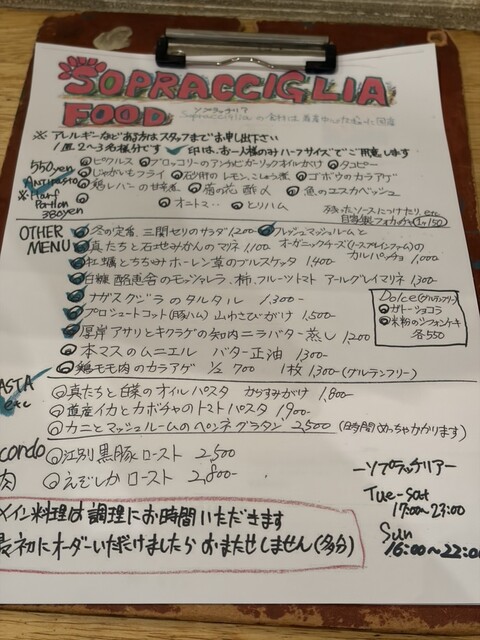 SOPRACCIGLIA
FOOD
ソプラッチリア
Sopraccigliaの食材は
※アレルギーなどある方はスタッフまでお申し出下さい
1皿2〜3名様分です ✓印は、お一人様のみハーフサイズでご用意します
550yen ◎ピクルス ◎ブロッコリーのアンチョビガーリックオイルがけ ◎タコピー
Antipasto ◎じゃがいもフライ ◎砂肝のレモン、こしょう煮 ◎ゴボウのカラアゲ
※Half Portion 380yen ◎鶏レバーの甘辛煮 ◎ ◎魚のエスカベッシュ
◎オニトマ ◎とりハム
残ったソースにつけたりetc
自家製フォカッチャ(1ヶ150)
OTHER MENU ◎冬の定番、三関セリのサラダ 1,200 ◎フレッシュマッシュルームと
◎真たちと石地みかんのマネ 1,100 オーガニックチーズ(ースプレインファームの) カルパッチョ 1,000
◎牡蠣とちぢみホーレン草のブルスケッタ 1,400
◎白糠 酪恵舎のモッツァレラ、柿、フルーツトマト アールグレイマリネ 1,300
◎ナガスクジラのタルタル 1,300-
◎プロシュートコット(豚ハム) 山わさびがけ 1,500-
◎厚岸アサリとキクラゲの知内ニラバター蒸し 1,200
◎本マスのムニエル バター正油 1,300-
◎鶏モモ肉のカラアゲ 1/2 700 1枚 1,300-(グルテンフリー)
Dolce(グルテンフリー)
◎ガトーショコラ
◎米粉のシフォンケーキ
各550
ASTA etc ◎真たちと白菜のオイルパスタ からすみがけ 1,800-
◎道産イカとカボチャのトマトパスタ 1,900-
◎カニとマッシュルームのペンネグラタン 2,500 (時間めっちゃかかります)
condo ◎江別黒豚ロースト 2,500
肉 ◎えぞしかロースト 2,800-
メイン料理は調理にお時間いただきます
最初にオーダーいただけましたらおまたせしません(多分)
ーソプラッチリアー
Tue-Sat
17:00〜23:00
Sun
16:00〜22:00